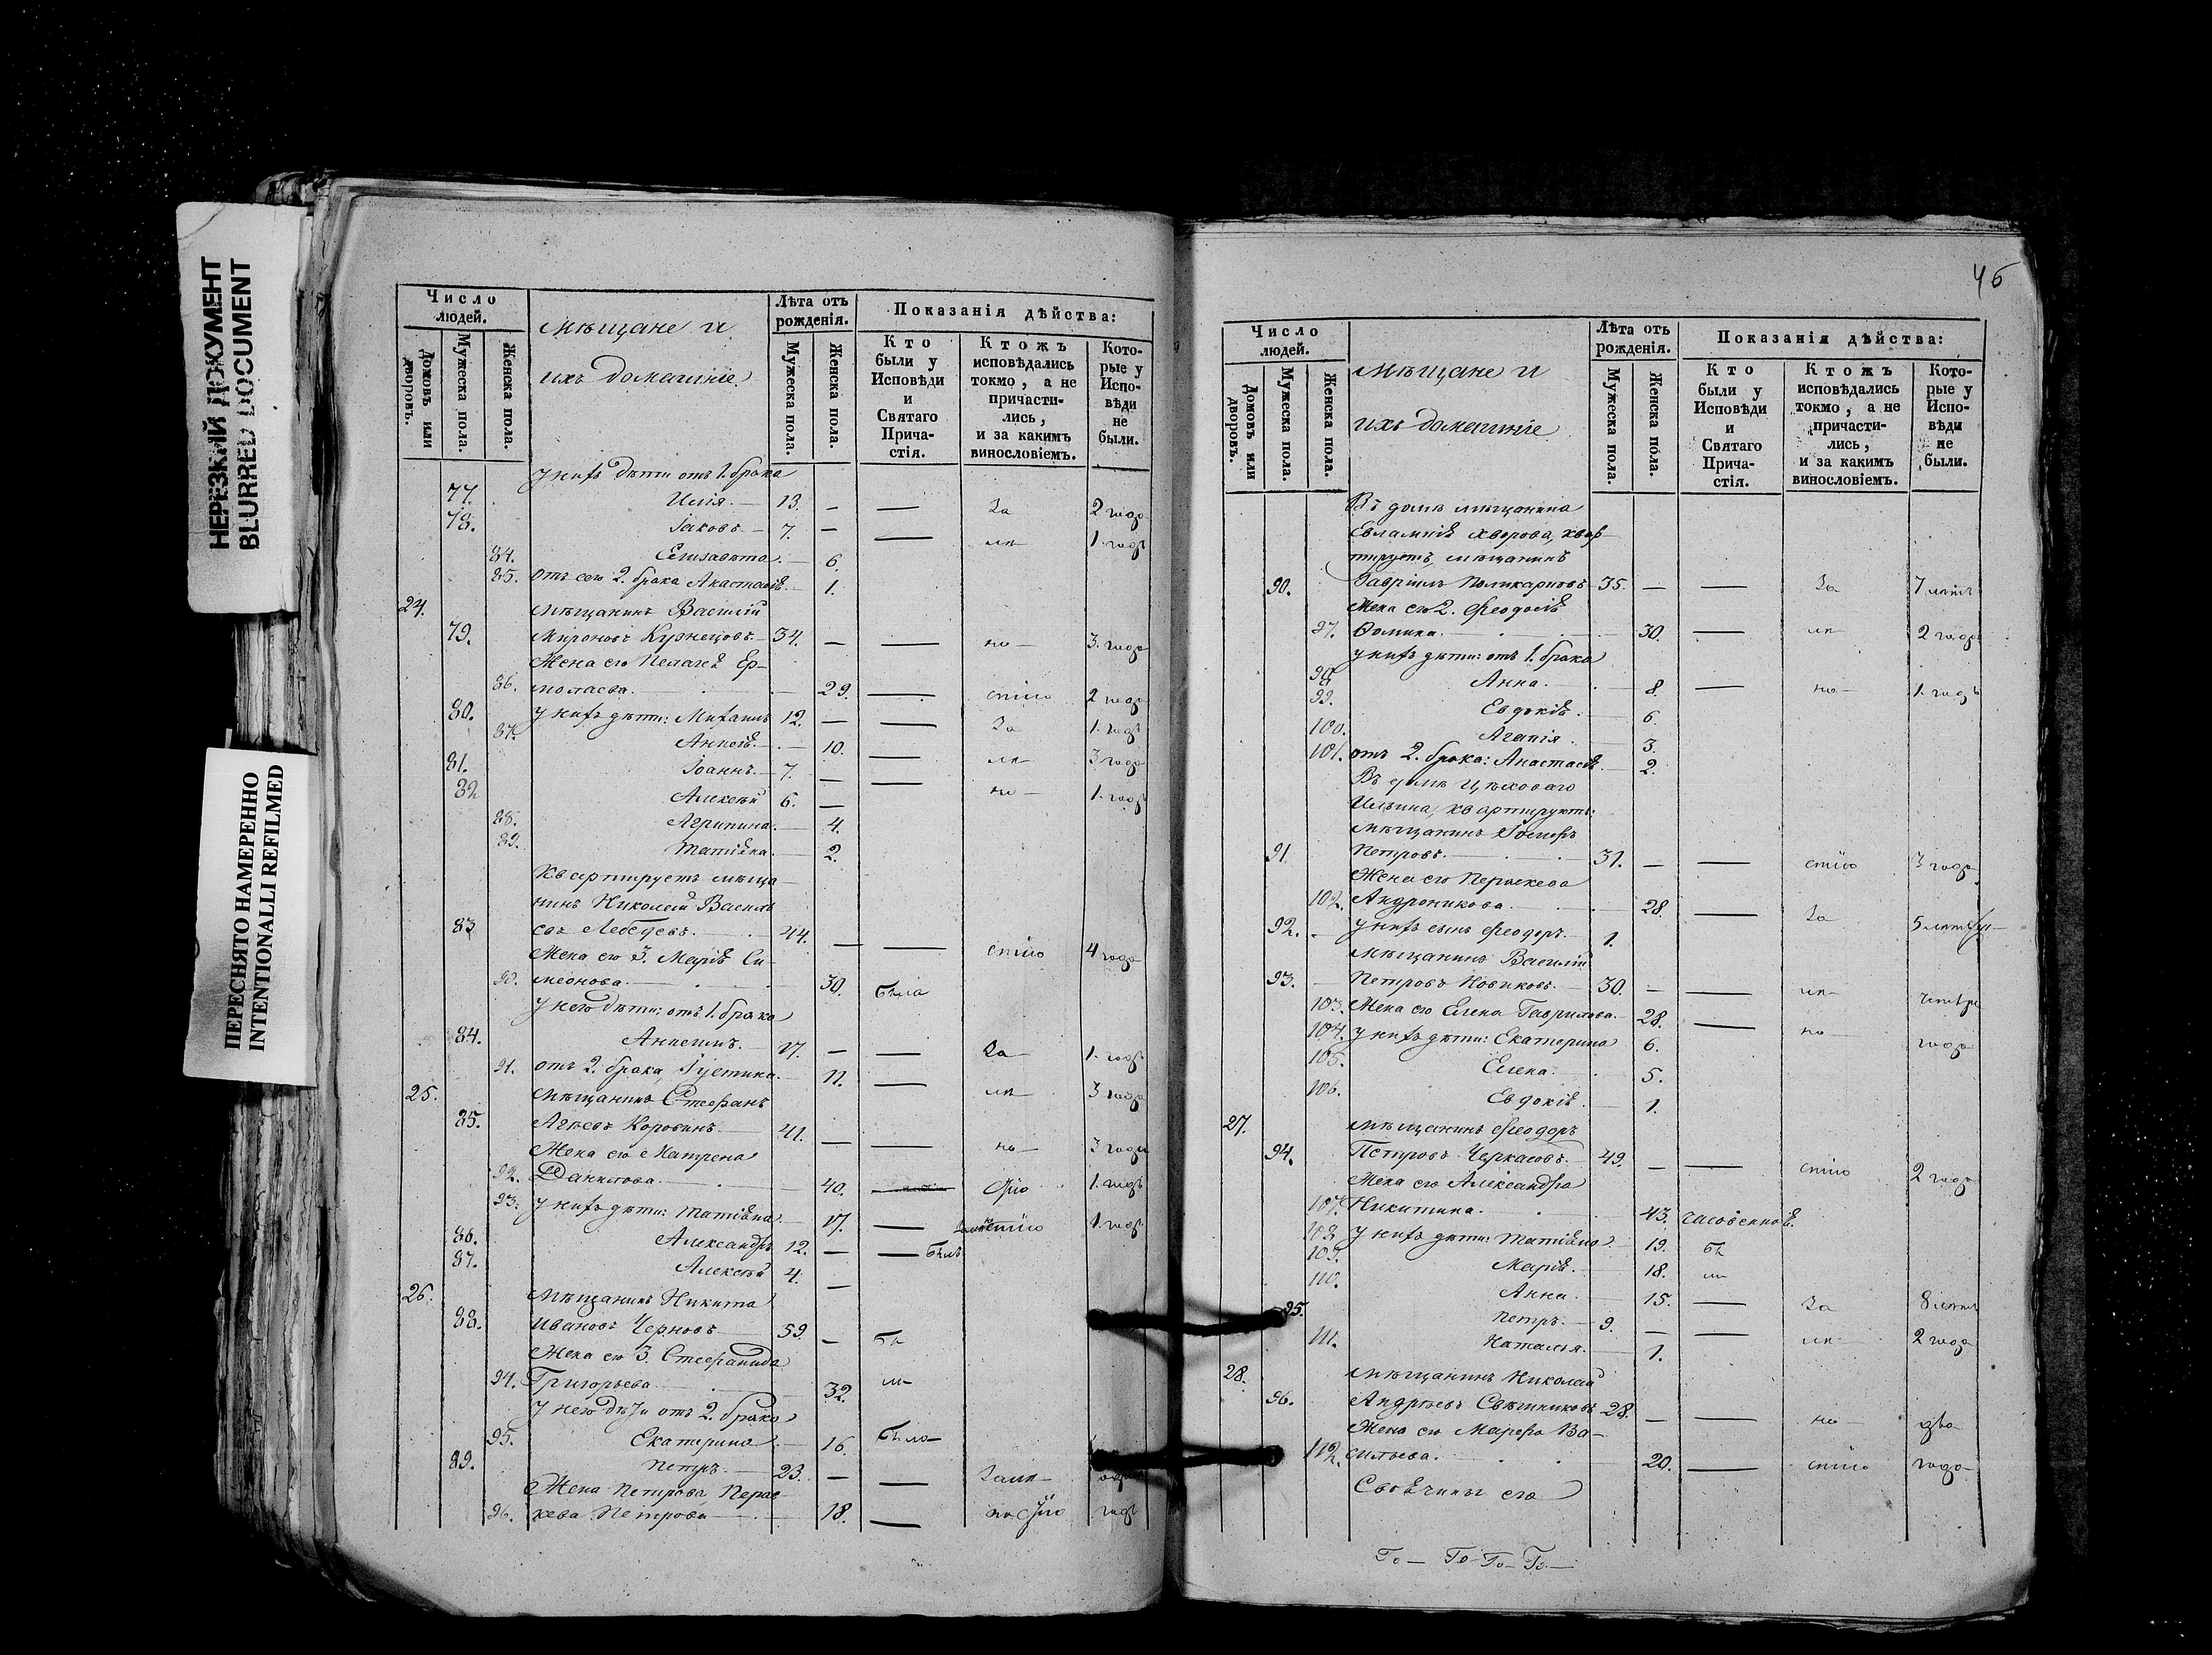 НЕРЕЗКИЙ ДОКУМЕНТ
BLURRED DOCUMENT
ПЕРЕСНЯТО НАМЕРЕННО
INTENTIONALLI REFILMED
Число людей.
Домовъ или дворовъ.
Мужеска пола.
Женска пола.
мѣщане и
ихъ домашніе.
Лѣта отъ рожденія.
Мужеска пола.
Женска пола.
Показанія дѣйства:
Кто были у Исповѣди и Святаго Причастія.
Ктожъ исповѣдались токмо, а не причастились, и за какимъ винословіемъ.
Которые у Исповѣди не были.
у нихъ дѣти отъ 1. брака
77. Илія. 13. — — За 2 года
78. Іаковъ. 7. — — 1. годъ
84. Елизавета. 6.
85. отъ сего 2. брака Анастасія. 1.
24. мѣщанинъ Василій
79. Мироновъ Кузнецовъ. 34. — — но 3. года
Жена его Пелагея Ер-
86. молаева. 29. — 2 года
80. у нихъ дѣти: Михаилъ 12. — — За 1. годъ
87. 10. — 3 года
81. Іоаннъ. 7. — — но 1. годъ
82 Алексѣй 6. —
88. Агрипина. 4.
89. Татіана. 2.
Квартируетъ мѣща-
нинъ Николай Василь
83 евъ Лебедевъ. 44. — — 4 года
Жена его 3. Марія Си-
90. меонова. 30. была
у него дѣти: отъ 1. брака
84. 17. — — За 1. годъ
91. отъ 2. брака Іустина. 11. — 3 года
25. Мѣщанинъ Стефанъ
85. Коровинъ. 41. — — но 3 года
Жена его Матрена
92. Данилова. 40. 1. годъ
93. у нихъ дѣти: Татіана. 17. — 1. годъ
86. Александръ 12. — — былъ
87. Алексѣй 4. —
26. Мѣщанинъ Никита
88. Ивановъ Черновъ 59. — бы
Жена его 3. Стефанида
94. Григорьева 32.
у него дѣти отъ 2. брака
95. Екатерина 16. была
89. Петръ. 23. — —
Жена Петрова, Парас-
96. кева Петрова 18. — годъ
46
Число людей.
Домовъ или дворовъ.
Мужеска пола.
Женска пола.
мѣщане и
ихъ домашніе
Лѣта отъ рожденія.
Мужеска пола.
Женска пола.
Показанія дѣйства:
Кто были у Исповѣди и Святаго Причастія.
Ктожъ исповѣдались токмо, а не причастились, и за какимъ винословіемъ.
Которые у Исповѣди не были.
Въ домѣ мѣщанина
Евлампія Хворова, квар-
тируетъ мѣщанинъ
90. Гавріилъ Поликарповъ 35. — — За 7 лѣтъ
Жена его 2. Феодосія
97. Фомина. 30. — 2 года
у нихъ дѣти: отъ 1. брака
98 Анна. 8. — но 1. годъ
99. Евдокія. 6.
100. Агапія. 3.
101. отъ 2. брака: Анастасія. 2.
Въ домѣ Цѣховаго
Ильина, квартируютъ:
мѣщанинъ Іосифъ
91 Петровъ. 31. — — 3 года
Жена его Параскева
102. Андроникова. 28. — За 5 лѣтъ
92. у нихъ сынъ Феодоръ. 1.
мѣщанинъ Василій
93. Петровъ Новиковъ. 30. — —
103. Жена его Елена Гаврилова. 28. — но
104. у нихъ дѣти: Екатерина 6. года
105. Елена. 5.
106. Евдокія. 1.
27. мѣщанинъ Феодоръ
94. Петровъ Черкасовъ. 49. — — 2 года
Жена его Александра
107. Никитина. 43.
108 у нихъ дѣти: Татіана. 19. бы
109. Марія. 18. ли
110. Анна. 15. — За 8 лѣтъ
95. Петръ. 9. — — 2 года
111. Наталья. 1.
28. мѣщанинъ Николай
96. Андреевъ Свѣшниковъ 28. — — но два
Жена его Марфа Ва-
112. сильева. 20. — года
его